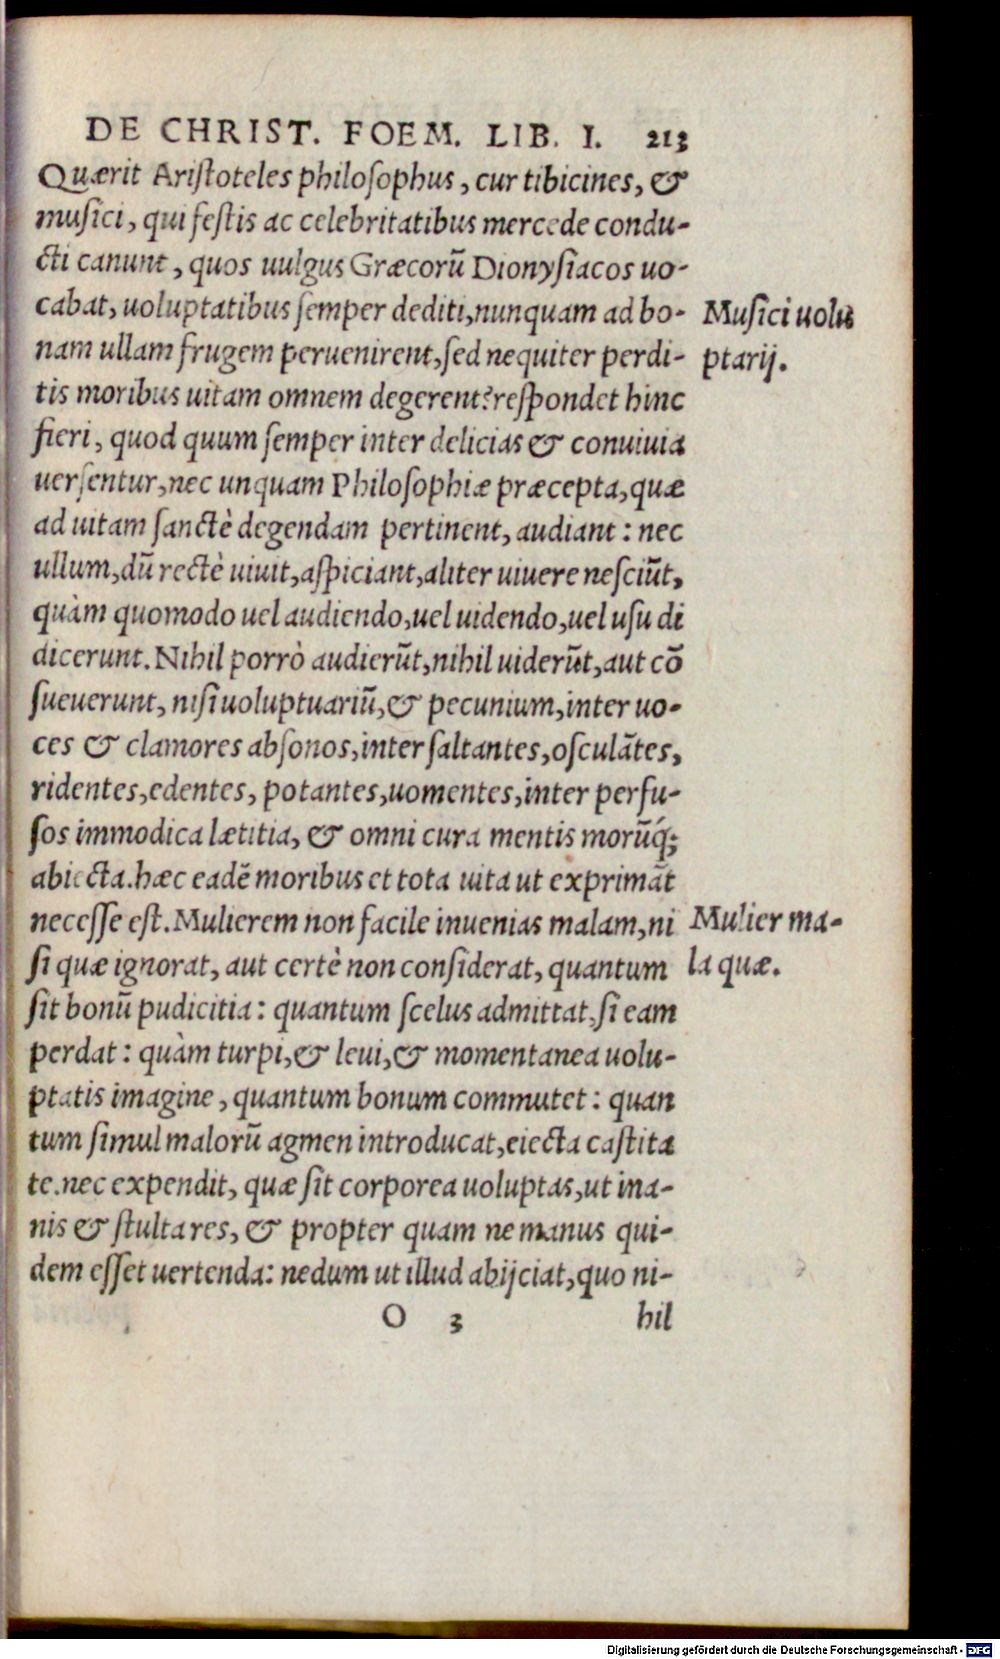 DE CHRIST. FOEM. LIB. I. 213
Quærit Ariſtoteles philoſophus, cur tibicines, &
muſici, qui feſtis ac celebritatibus mercede condu-
cti canunt, quos uulgus Græcorū Dionyſiacos uo-
cabat, uoluptatibus ſemper dediti, nunquam ad bo-
Muſici uolu
nam ullam frugem peruenirent, ſed nequiter perdi-
ptarij.
tis moribus uitam omnem degerent? reſpondet hinc
fieri, quod quum ſemper inter delicias & conuiuia
uerſentur, nec unquam Philoſophiæ præcepta, quæ
ad uitam ſanctè degendam pertinent, audiant: nec
ullum, dū rectè uiuit, aſpiciant, aliter uiuere neſciūt,
quàm quomodo uel audiendo, uel uidendo, uel uſu di
dicerunt. Nihil porrò audierūt, nihil uiderūt, aut cō
ſueuerunt, niſi uoluptuariū, & pecunium, inter uo-
ces & clamores abſonos, inter ſaltantes, oſculātes,
ridentes, edentes, potantes, uomentes, inter perfu-
ſos immodica lætitia, & omni cura mentis morūq́;
abiecta. hæc eadē moribus et tota uita ut exprimāt
neceſſe eſt. Mulierem non facile inuenias malam, ni
Mulier ma-
ſi quæ ignorat, aut certè non conſiderat, quantum
la quæ.
ſit bonū pudicitia: quantum ſcelus admittat, ſi eam
perdat: quàm turpi, & leui, & momentanea uolu-
ptatis imagine, quantum bonum commutet: quan
tum ſimul malorū agmen introducat, eiecta caſtita
te. nec expendit, quæ ſit corporea uoluptas, ut ina-
nis & ſtulta res, & propter quam ne manus qui-
dem eſſet uertenda: nedum ut illud abijciat, quo ni-
O 3 hil
Digitalisierung gefördert durch die Deutsche Forschungsgemeinschaft - DFG